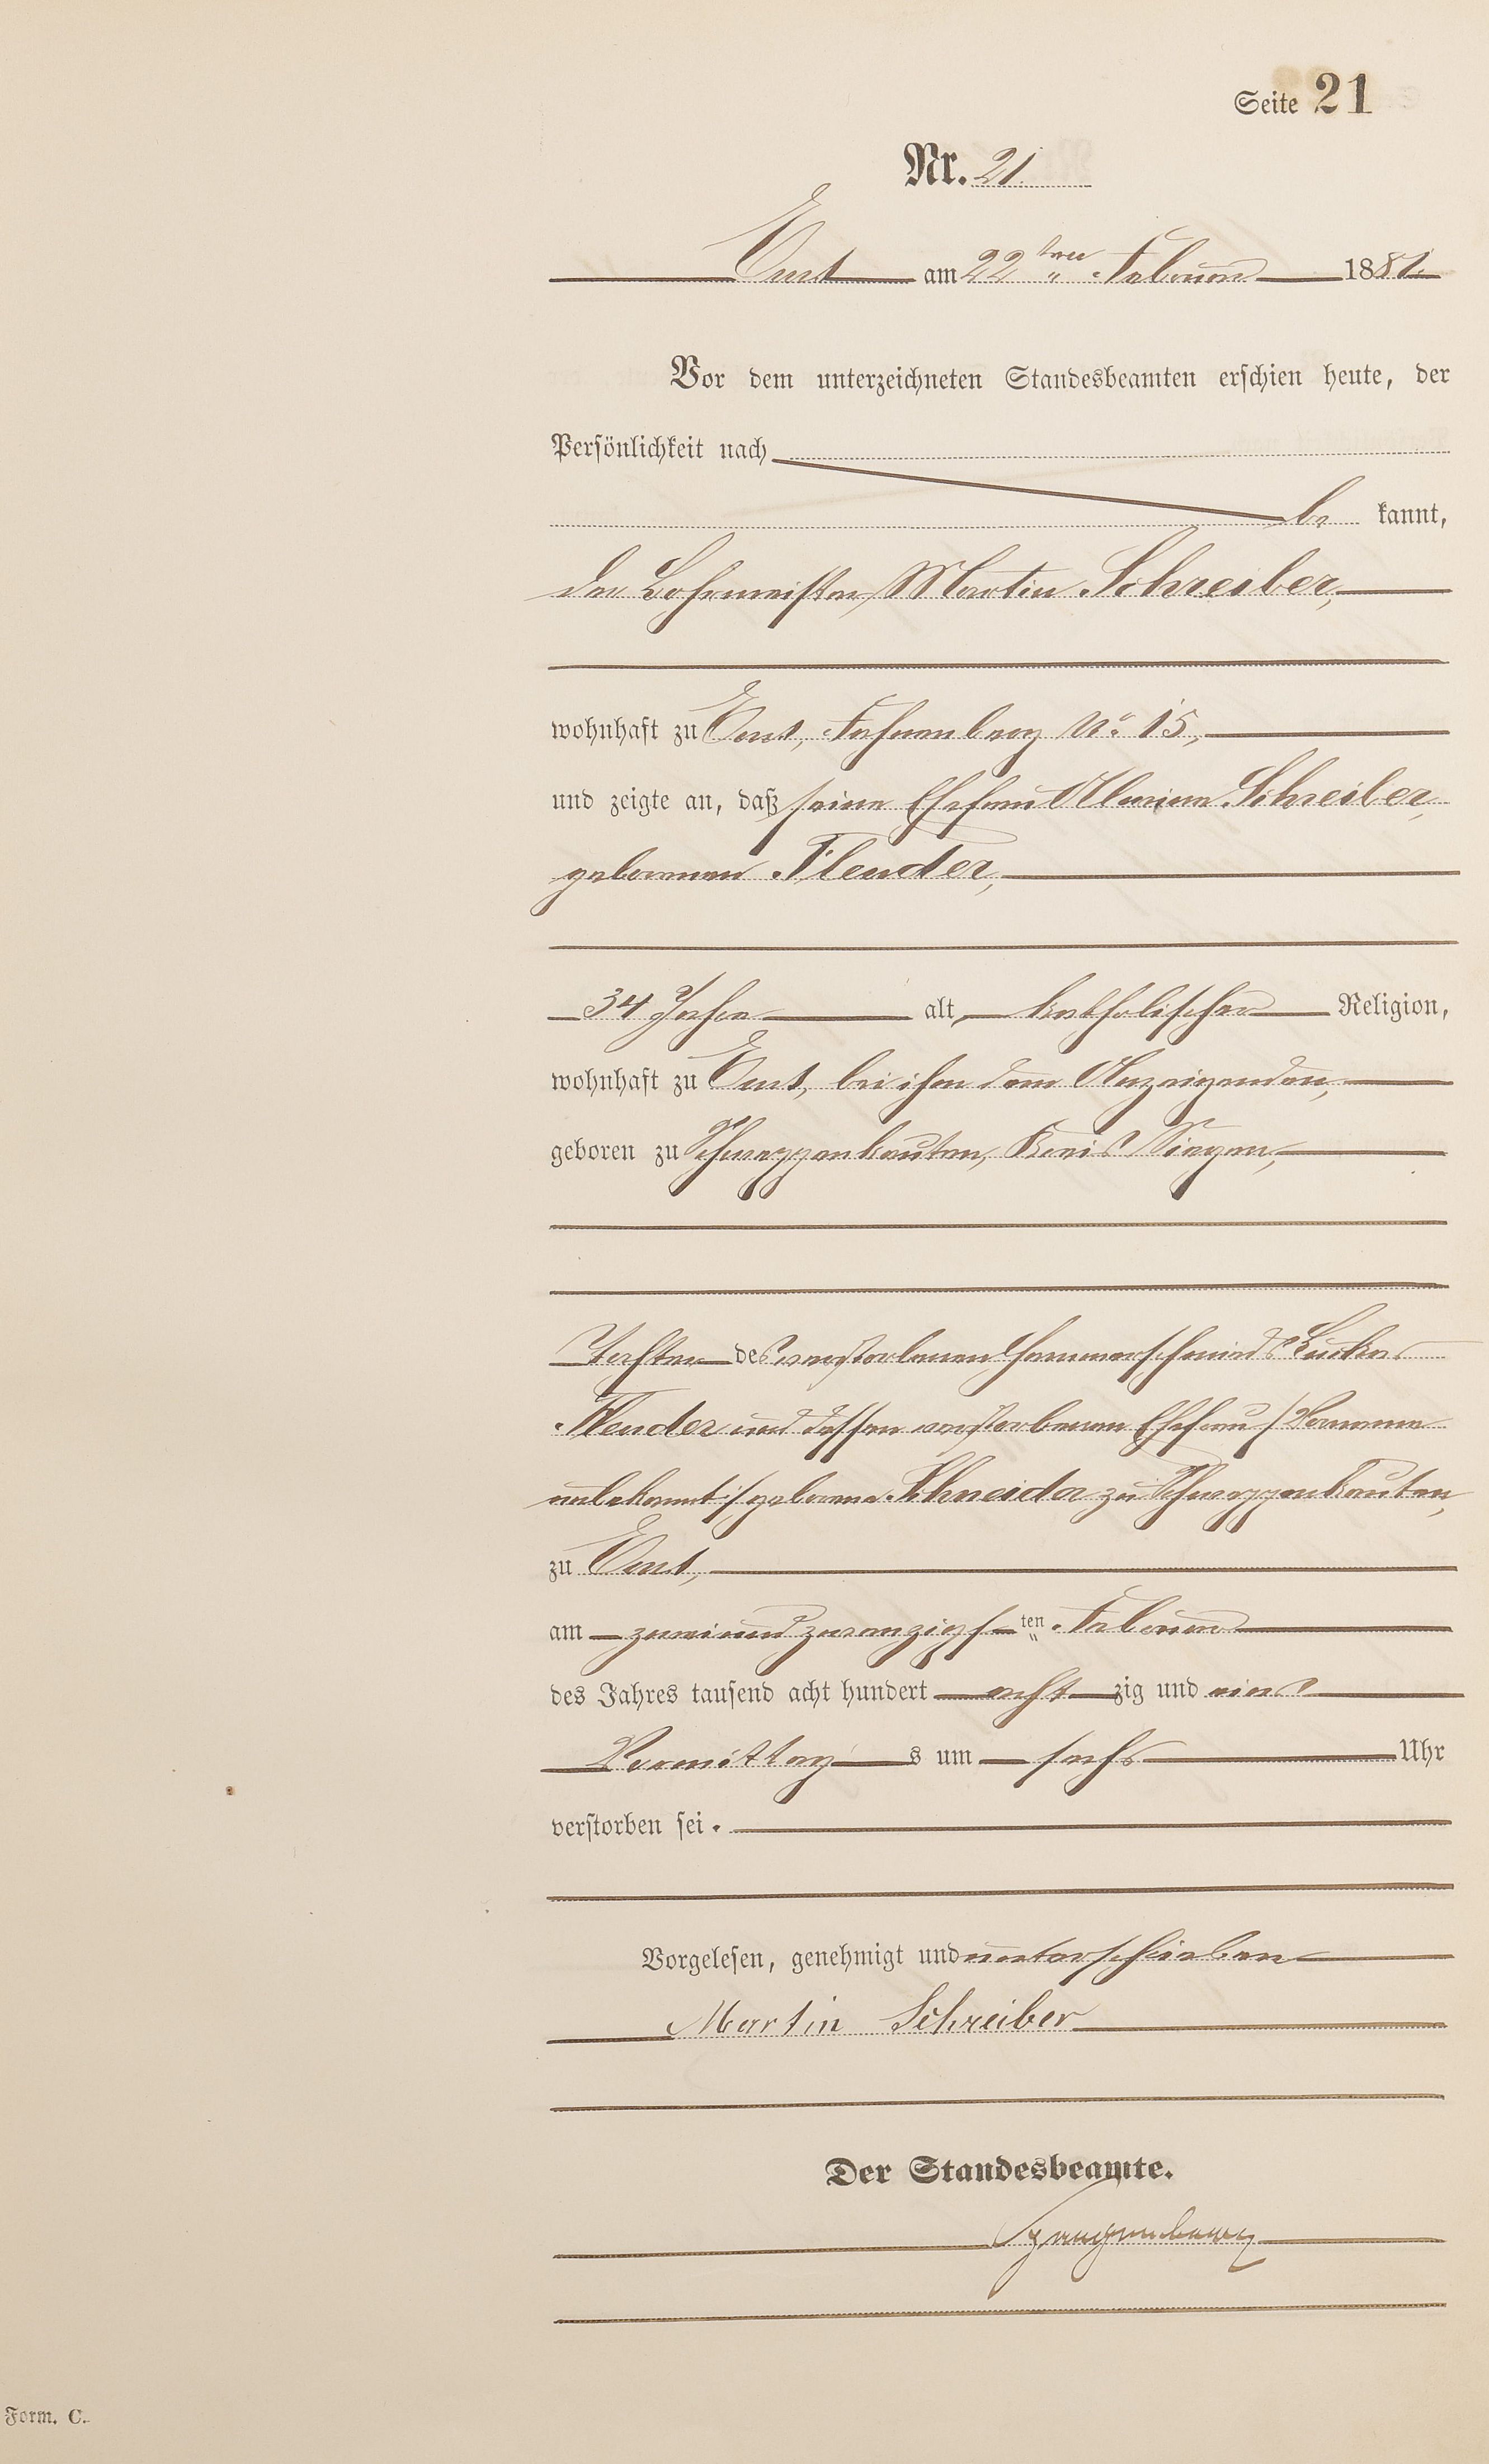 Seite 21
Nr. 21
am 22ten Februar 1881.
Vor dem unterzeichneten Standesbeamten erschien heute, der
Persönlichkeit nach
be kannt,
der Bohrmeister Martin Schreiber,
wohnhaft zu No 15,
und zeigte an, daß seine Ehefrau Schreiber,
geborenen Flender,
34 Jahre alt, katholischer Religion,
wohnhaft zu bei ihm dem Anzeigenden,
geboren zu Kreis Siegen,
Tochter des verstorbenen Hammerschmieds Lukas
Flender und dessen verstorbenen Ehefrau /:Vorname
unbekannt:/ geborene Schneider zu
zu
am zweiundzwanzigsten Februar
des Jahres tausend acht hundert acht zig und eins
Vormittag s um sechs Uhr
verstorben sei.
Vorgelesen, genehmigt und unterschrieben
Martin Schreiber
Der Standesbeamte.
Form. C.